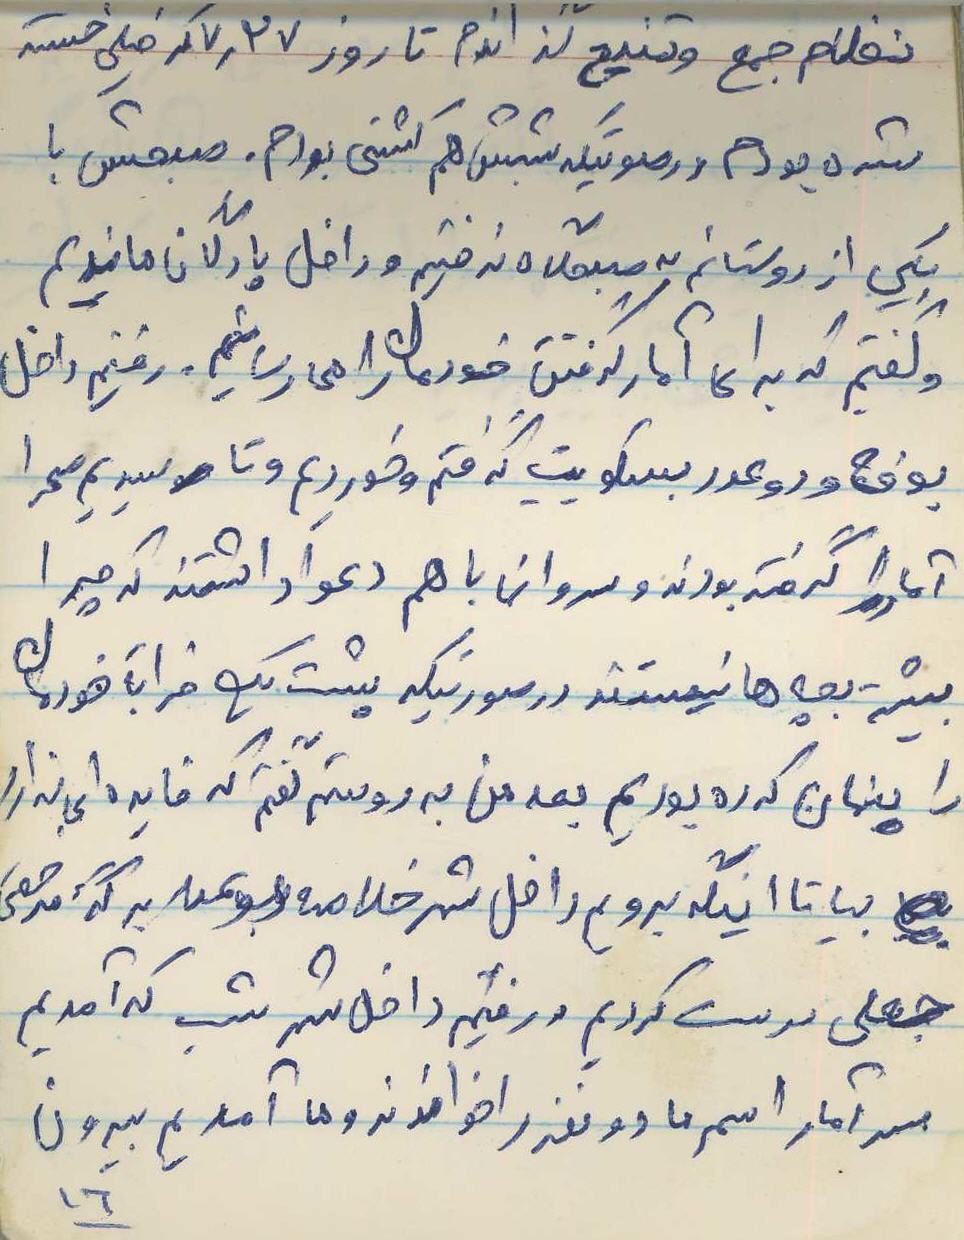 نظام جمع و تنبیح گذراندم تا روز ۷٫۲۷ که خیلی خسته
شده بودم درصوتیکه شبش هم کشتی بودم. صبحش با
یکی از دوستانم به صبحگاه نرفتیم و داخل پادگان ماندیم
و گفتیم که برای آمار گرفتن خودمان را می رسانیم. رفتیم داخل
بوفه و دو عدد بیسکویت گرفتم و خوردیم و تا رسیدیم صحرا
آمار را گرفته بودند و سروانها با هم دعوا داشتند که چرا
بیشتر بچه ها نیستند درصورتیکه پشت یک خرابه خودمان
را پنهان کرده بودیم بعد من به دوستم گفتم که فایده ای ندارد
بیا تا اینکه برویم داخل شهر خلاصه برگه مرخصی
جعلی درست کردیم و رفتیم داخل شهر شب که آمدیم
سر آمار اسم ما دو نفر را خواندند و ما آمدیم بیرون
۱٦